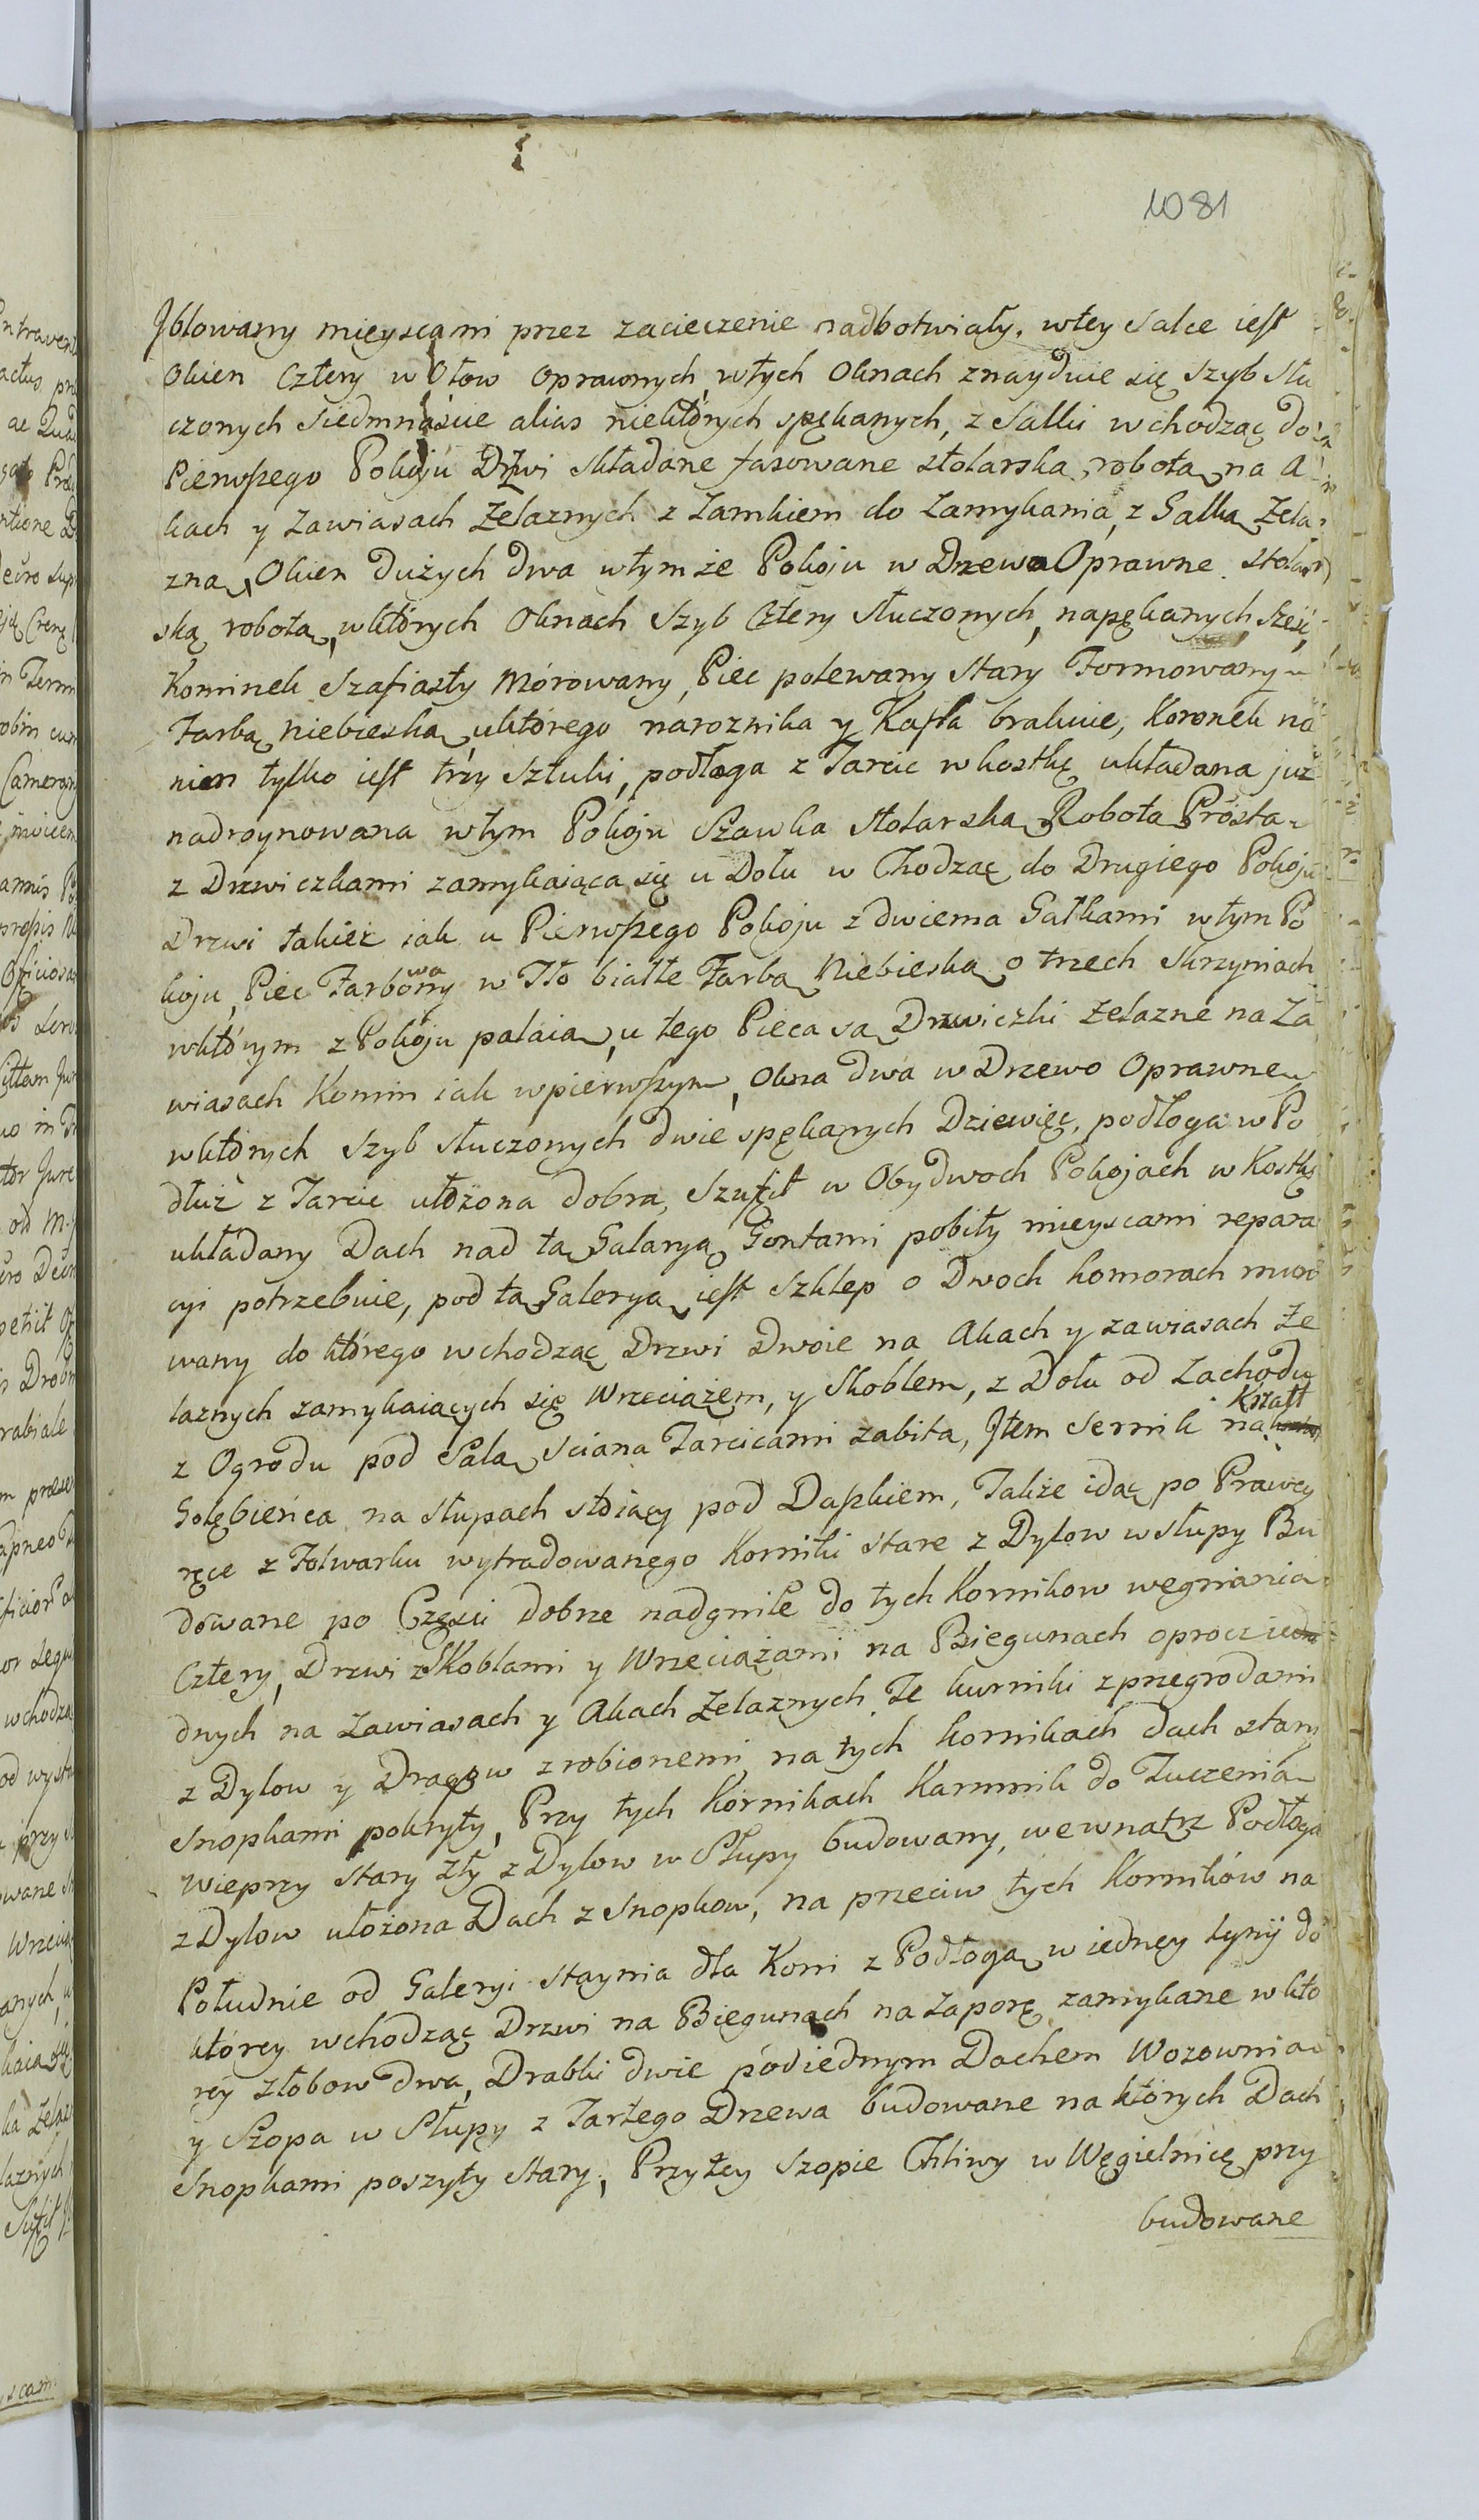 1081
Jblowany mięyscami przez zacieczenie nadbotwiały. wtey Salce iest
Okien Cztery w Ołow Oprawnych, wtych Oknach znayduie się Szyb Stłu
czonych Siedmnaście alias niektórych spękanych, z Salki wchodząc do
Pierwszego Pokoju Drzwi składane fasowane stolarską robotą na A
kach y Zawiasach Żelaznych z Zamkiem do Zamykania, z Gałką Żela
zną, Okien dużych dwa wtymże Pokoju w Drzewo Oprawne stolar
ską robotą, wktórych Oknach Szyb Cztery stłuczonych, napękanych Sześć,
Kominek Szafiasty Mórowany, Piec polewany stary Formowany
Farbą niebieską, uktórego naroznika y Kafla brakuie, Koronek na
nien tylko iest trzy sztuki, podłoga z Tarcic wkostkę układana już
nadroynowana wtym Pokoju Szawka stolarską Robotą Prostą
z Drzwiczkami zamykaiąca się u Dołu w Chodząc do Drugiego Pokoju
Drzwi takież iak u Pierwszego Pokoju z dwiema Gałkami wtym Po
koju, Piec Farbowany w Tło białte Farbą Niebieską o trzech Skrzyniach
wktórym z Pokoju palaią, u tego Pieca są Drzwiczki żelazne na Za
wiasach Komin iak wpierwszym, Okna dwa w Drzewo Oprawne
wktórych Szyb stłuczonych dwie spękanych Dziewięć, podłoga w Po
dłuż z Tarcic ułożona dobra, Szufit w Obydwoch Pokojach w Kostkę
układany Dach nad tą Galaryą Gontami pobity mieyscami repara
cyi potrzebuie, pod tą Galeryą iest Szklep o Dwoch komorach muro
wany do którego wchodząc Drzwi Dwoie na Akach y zawiasach Że
laznych zamykaiących się Wrzeciążem, y Skoblem, z Dołu od Zachodu
z Ogrodu pod Salą Sciana Tarcicami zabita, Jtem Sernik na Kształt
Gołębieńca na słupach stoiący pod Daszkiem, Także idąc po Prawey
ręce z Folwarku wytradowanego Korniki stare z Dylow wsłupy Bu
dowane po Części dobrze nadgniłe do tych Kornikow wegniania
Cztery, Drzwi z Skoblami y Wrzeciążami na Biegunach oprócz ie
dnych na Zawiasach y Akach Żelaznych Te kurniki zprzegrodami
z Dylow y Drągow zrobionemi, na tych kornikach dach stary
Snopkami pokryty, Przy tych Kornikach Karmnik do Tuczenia
Wieprzy stary zły z Dylow w Słupy budowany, wewnątrz Podłoga
z Dylow ułożona Dach z Snopkow, na przeciw tych Korników na
Południe od Galeryi Staynia dla Koni z Podłogą w iednęy Lynij do
którey wchodząc Drzwi na Biegunach na Zaporę zamykane wktó
rey Złobow dwa, Drabki dwie podiednym Dachem Wozownia
y Szopa w Słupy z Tartego Drzewa budowane na których Dach
Snopkami poszyty stary, Przytey Szopie Chliwy w Węgielnicę przy
budowane